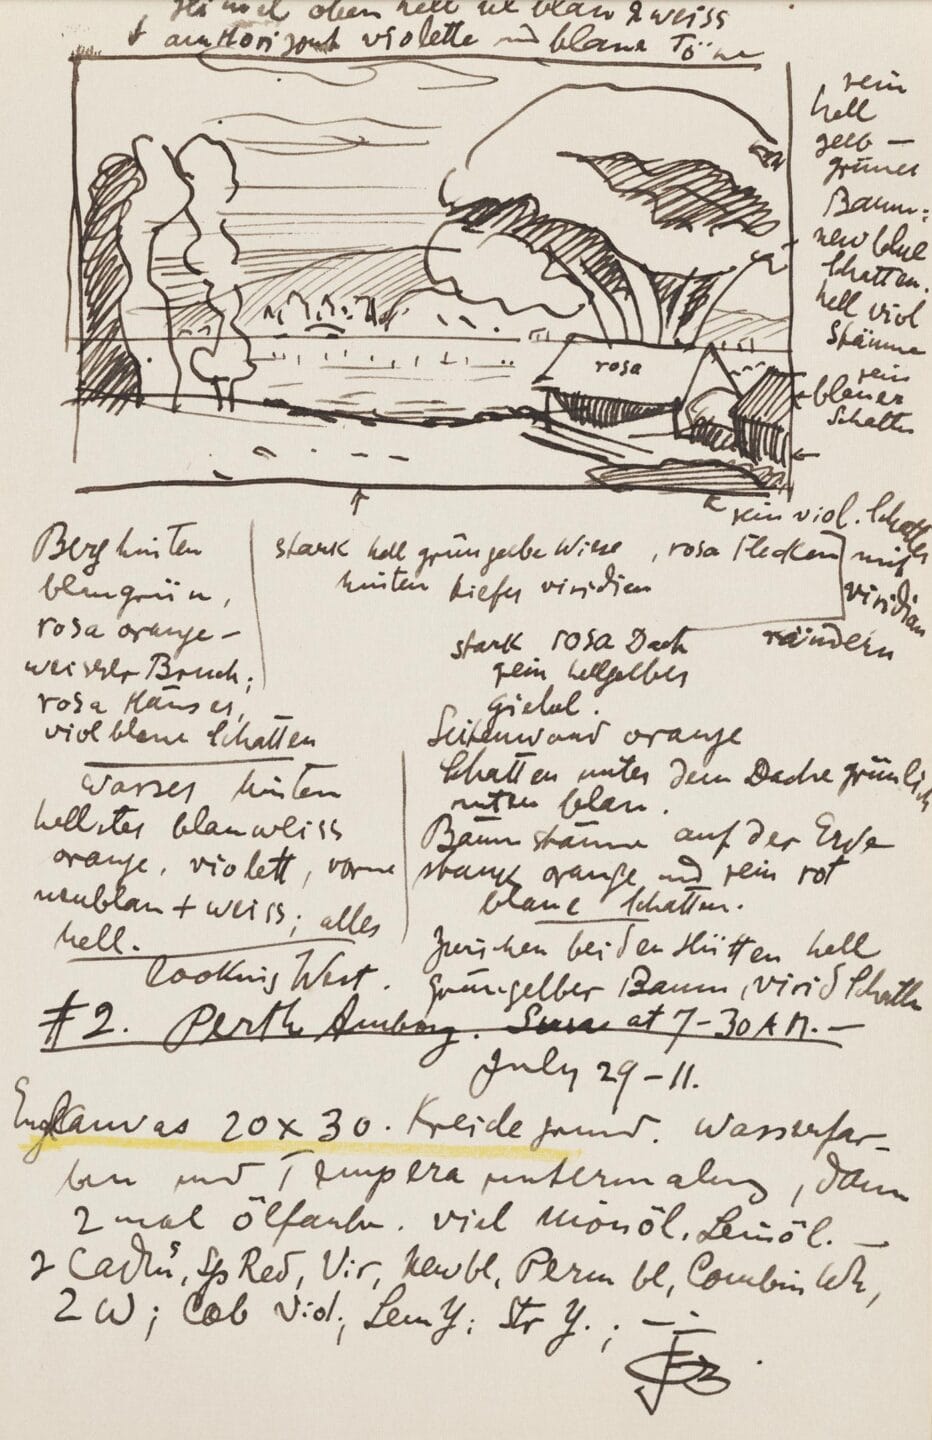 Himmel oben hell ul blau & weiss
+ am Horizont violette und blaue Töne
rein
hell
gelb —
grünes
Baum:
new blue
Schatten.
hell viol
Stämme
rein
blauer
Schatten
rosa
rein viol. Schatten
mit
viridian
rändern
Berg hinten
blaugrün,
rosa orange-
weisser Bruch;
rosa Häuser,
violblaue Schatten
stark hell grüngelbe Wiese, rosa Flecken
hinten tiefes viridian
stark rosa Dach
rein hellgelbes
Giebel.
Seitenwand orange
Schatten unter dem Dache grünlich
unten blau.
Baumstämme auf der Erde
stark orange und rein rot
blaue Schatten.
Zwischen beiden Hütten hell
grüngelber Baum, virid Schatten
Wasser hinten
hellstes blauweiss
orange, violett, vorne
neublau + weiss; alles
hell.
looking West.
#2. Perth Amboy. Sun at 7-30 A M. —
July 29-11.
Engl Canvas 20 x 30. Kreidegrund. Wasserfar-
ben und Tempera untermalung, dann
2 mal ölfarbe. viel Monöl, Leinöl. —
2 Cadms, Sp Red, Vir, Newbl, Perm bl, Combin Wh,
2 W; Cob Viol; Lem Y; Str Y.; —